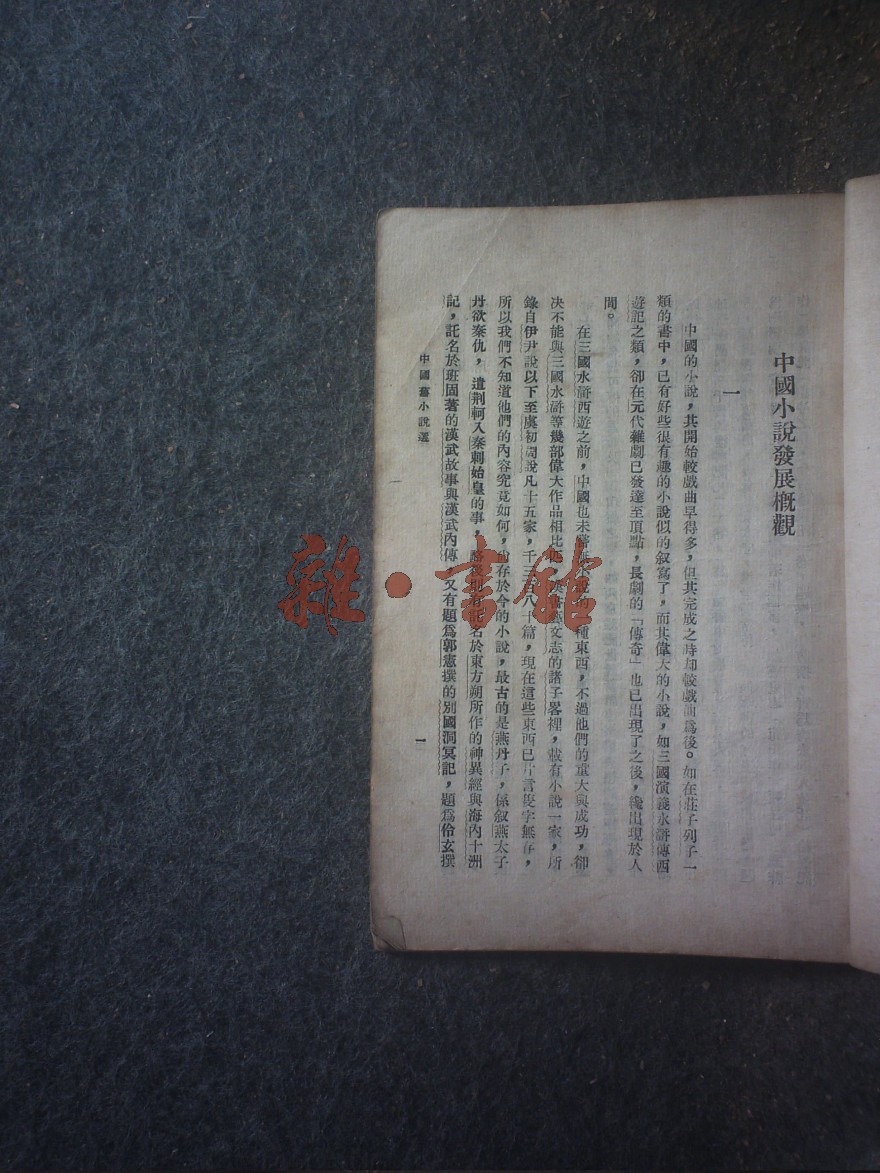 中國小說發展槪觀
一
中國的小說，其開始較戲曲早得多，但其完成之時却較戲曲爲後。如在莊子列子一
類的書中，已有好些很有趣的小說似的叙寫了，而其偉大的小說，如三國演義水滸傳西
遊記之類，卻在元代雜劇已發達至頂點，長劇的「傳奇」也已出現了之後，纔出現於人
間。
在三國水滸西遊之前，中國也未嘗無小說的一種東西，不過他們的重大與成功，卻
決不能與三國水滸等幾部偉大作品相比 漢書藝文志的諸子畧裡，載有小說一家，所
錄自伊尹說以下至虞初周說凡十五家，千三百八十篇，現在這些東西已片言隻字無存，
所以我們不知道他們的內容究竟如何， 存於今的小說，最古的是燕丹子，係叙燕太子
丹欲秦仇，遣荆軻入秦刺始皇的事，略後則有託名於東方朔所作的神異經與海內十洲
記，託名於班固著的漢武故事與漢武內傳 又有題爲郭憲撰的別國洞冥記，題爲伶玄撰
中國舊小說選
一
雜·書館